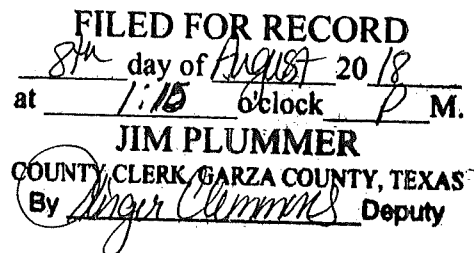 FILED FOR RECORD
8th day of August 20 18
at 1:15 o'clock P M.
JIM PLUMMER
COUNTY CLERK, GARZA COUNTY, TEXAS
By Ginger Clemmons Deputy